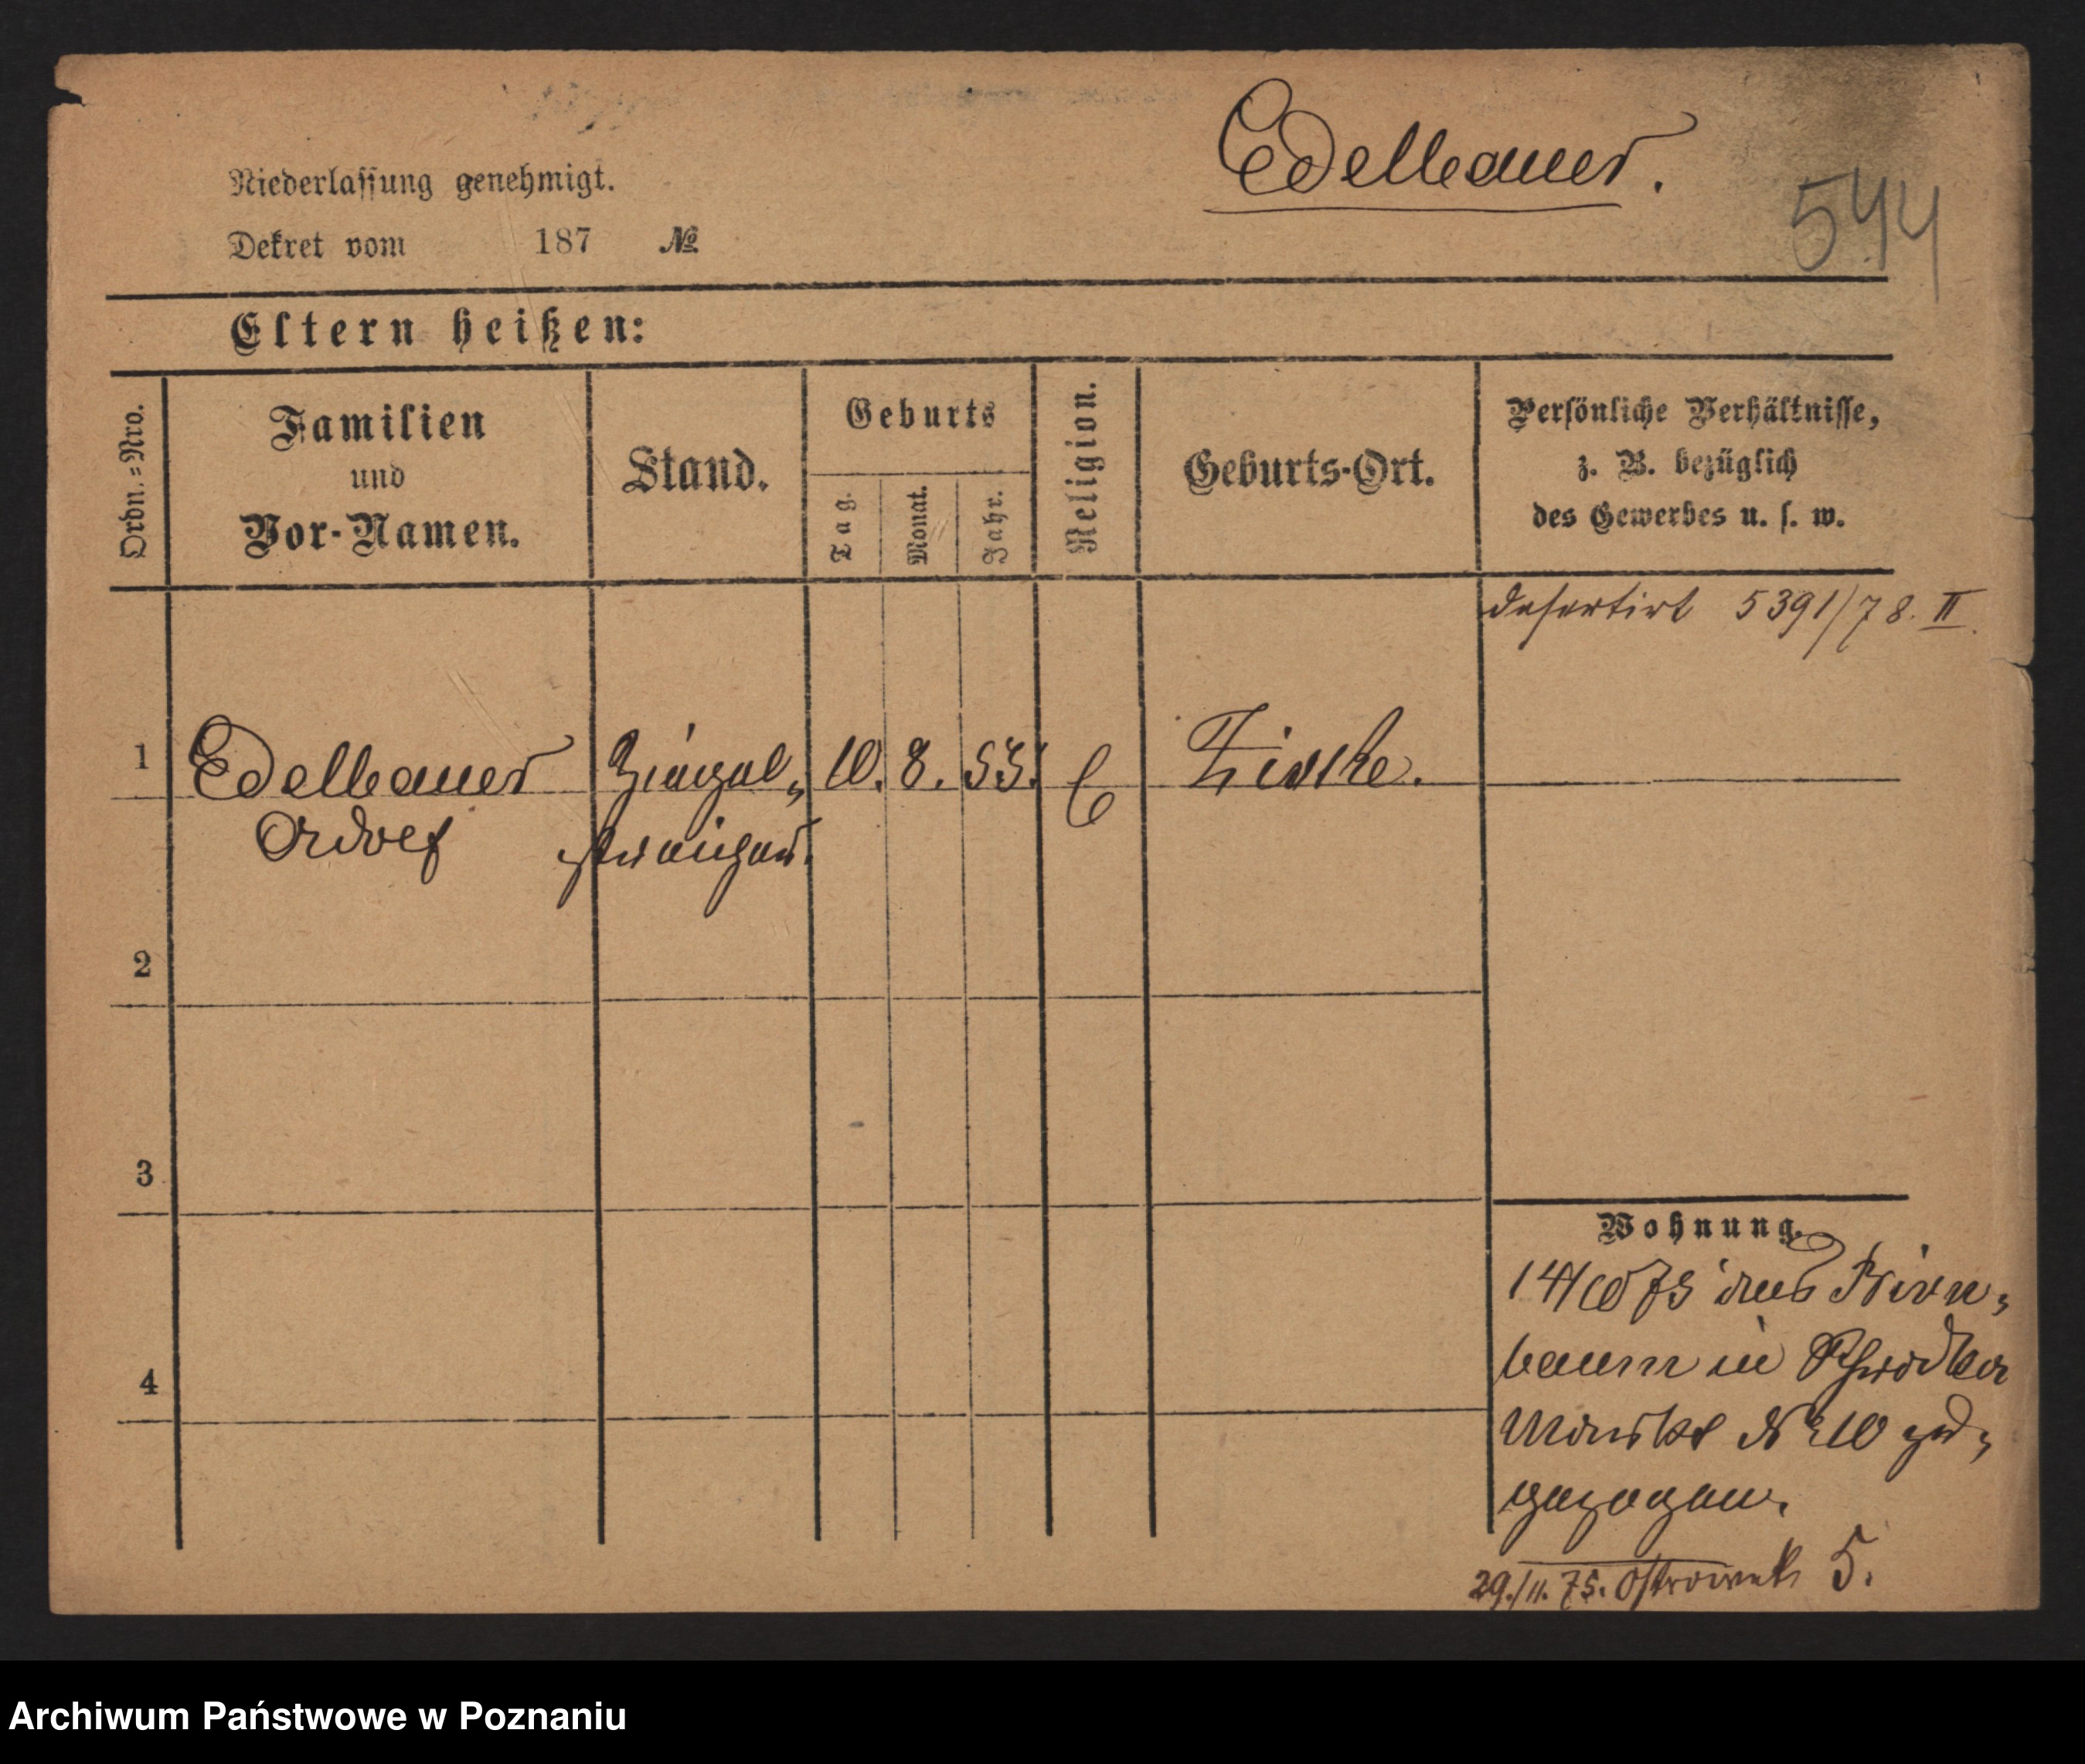 Edelbauer.
544
Niederlassung genehmigt.
Dekret vom 187 №
Eltern heißen:
Ordn.=Nro.
Familien
und
Vor-Namen.
Stand.
Geburts
Tag.
Monat.
Jahr.
Religion.
Geburts-Ort.
Persönliche Verhältnisse,
z. B. bezüglich
des Gewerbes u. s. w.
desertirt 5391/78. II.
1 Edelbauer Ziegel- 10. 8. 53. C Zirke.
streicher.
2
3
4
Wohnung.
14/10 75 aus Birn-
baum in
Markt № 10 zu-
gezogen.
29./11. 75. Ostrowek 5.
Archiwum Państwowe w Poznaniu